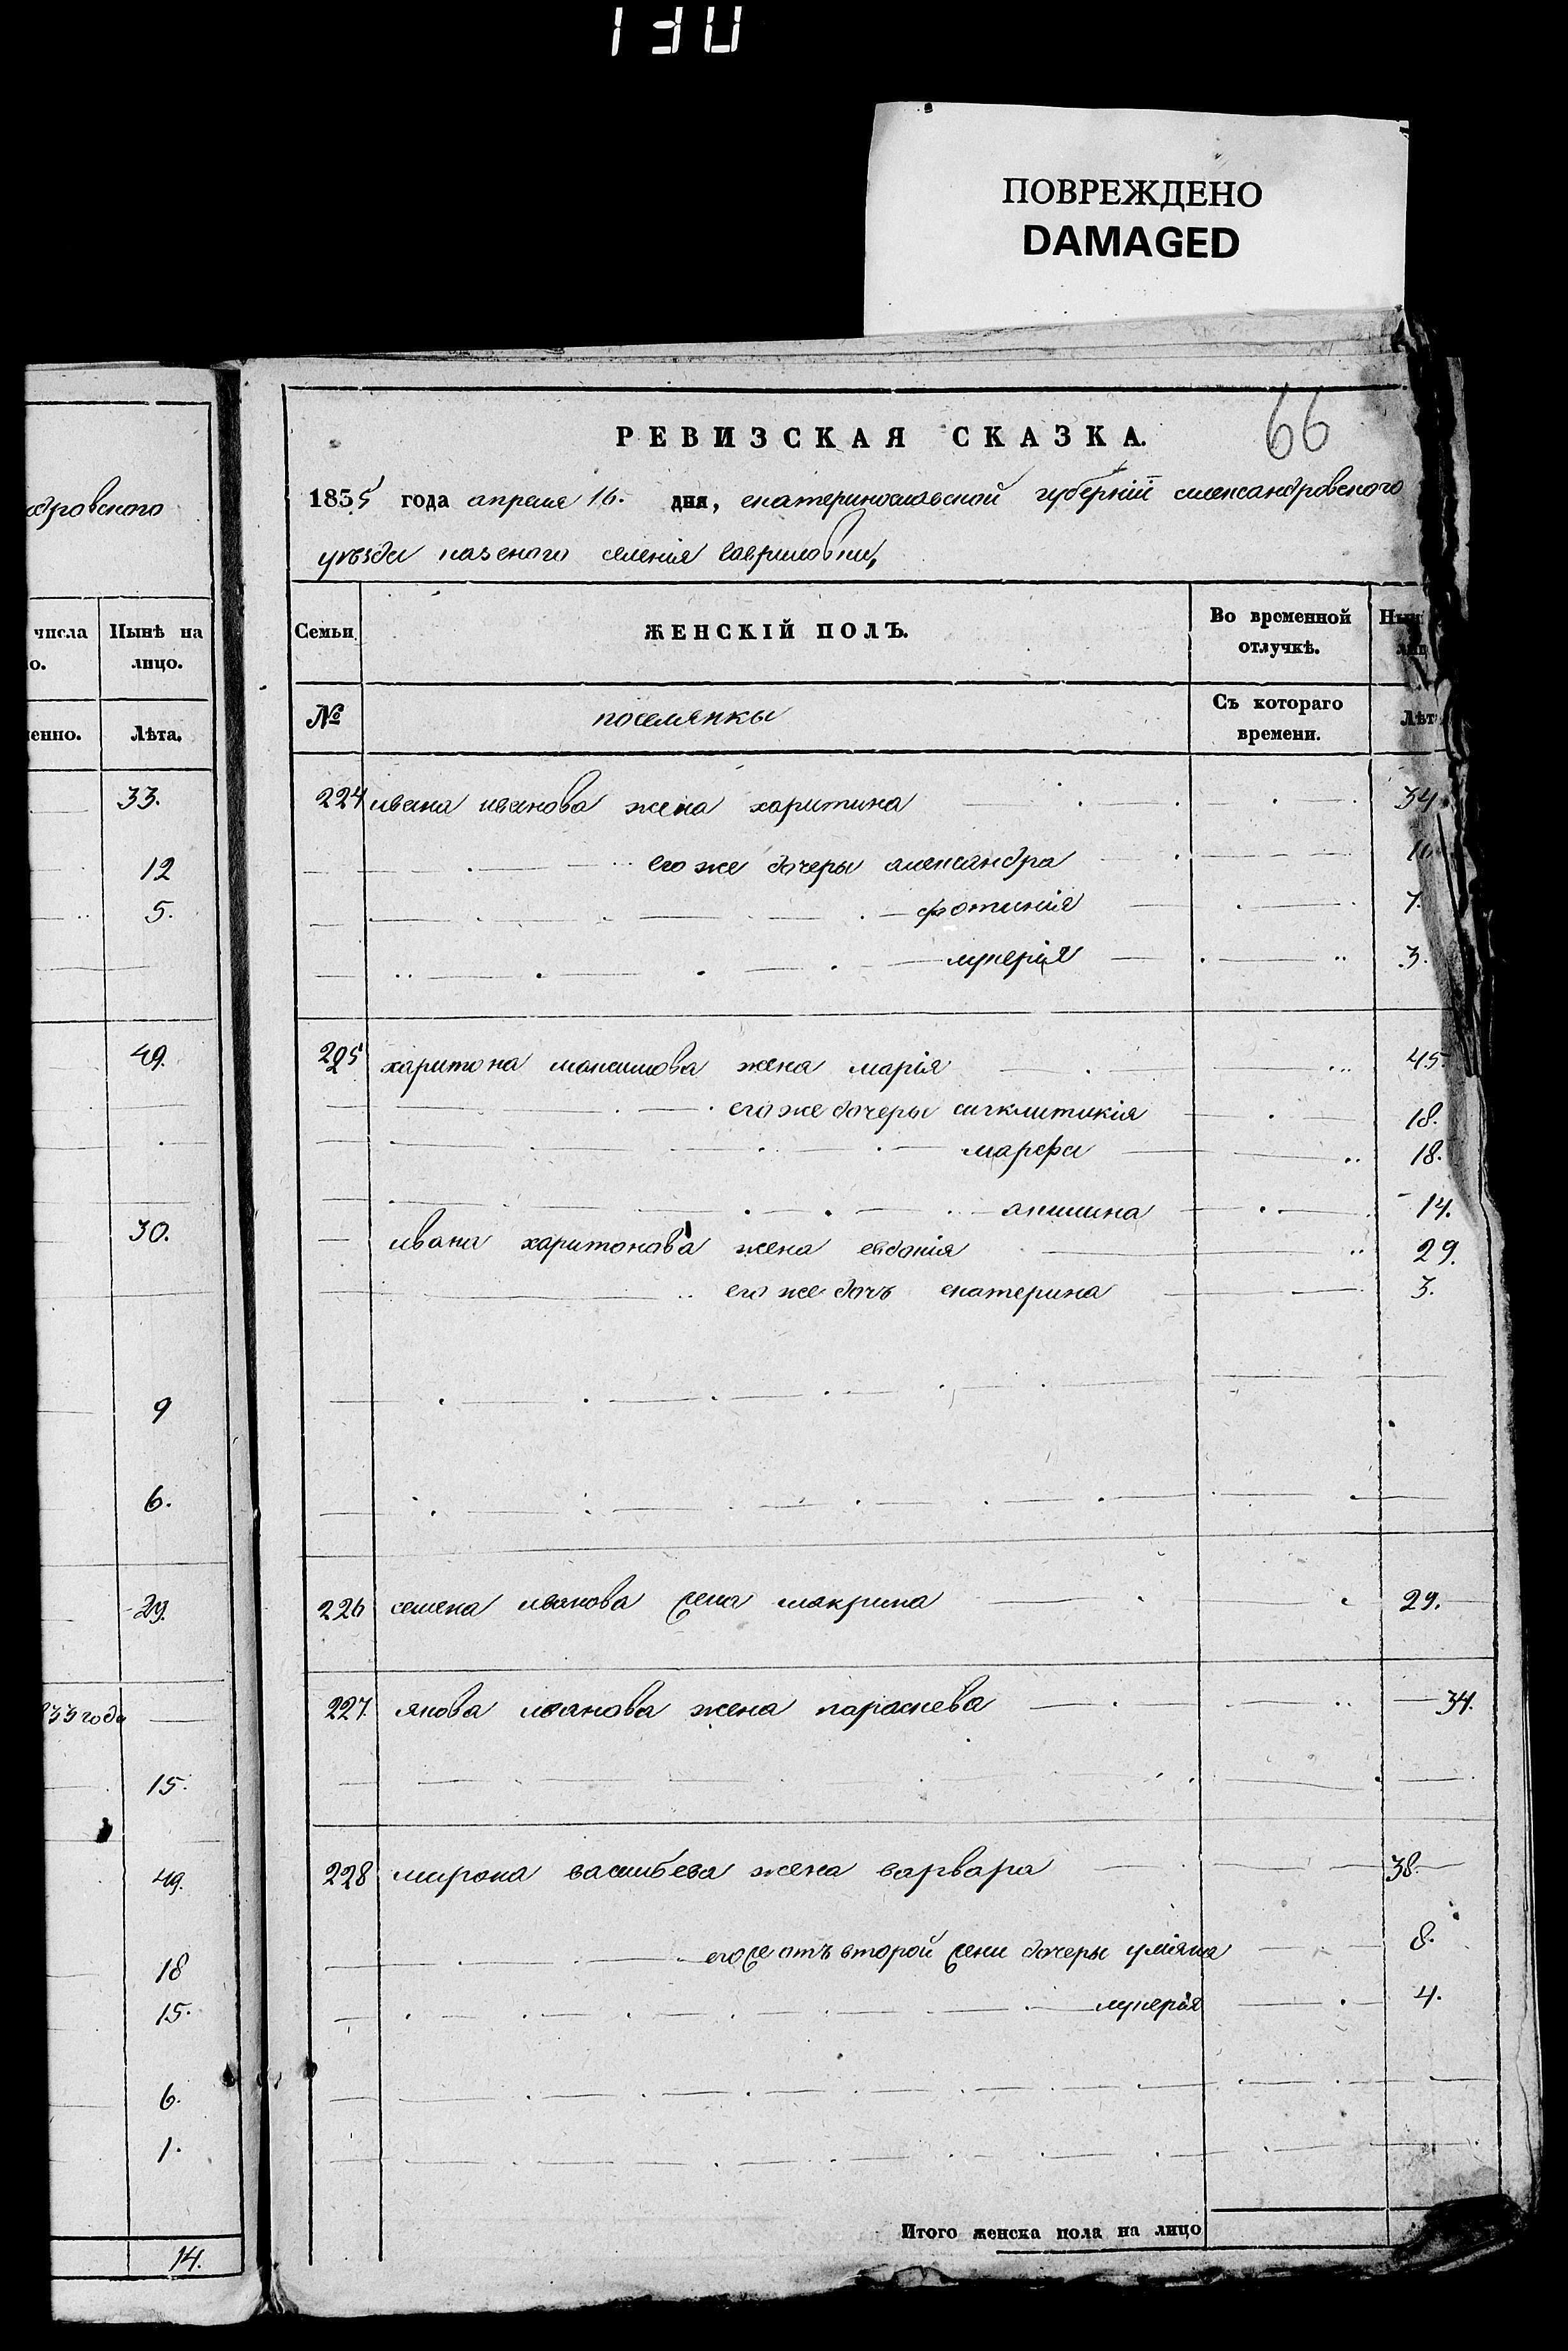 130
ПОВРЕЖДЕНО
DAMAGED
66
РЕВИЗСКАЯ СКАЗКА.
1835 года апреля 16. дня, екатеринославской губерніи александровского
уезда казеного селенія гавриловки,
Семьи ЖЕНСКІЙ ПОЛЪ. Во временной отлучкѣ.
№ поселянки Съ котораго времени. Лѣт
224 ивана иванова жена харитина 34
его же дочеры александра
фотинія 7.
лукерія 3.
225 харитона максимова жена марія 45
его же дочеры сигклитикія 18.
марфа 18.
акилина 14.
ивана харитонова жена евдокія 29.
его же дочъ екатерина 3.
226 семена иванова жена макрина 29.
227. якова иванова жена параскева 34.
228 мирона васильева жена варвара 38.
его же отъ второй жени дочеры уліяна 8.
лукерія 4.
Итого женска пола на лицо
дровского
числа Нынѣ на
о. лицо.
енно. Лѣта.
33.
12
5.
49.
30.
9
6.
29.
833 года
15.
49.
18
15.
6.
1.
14.